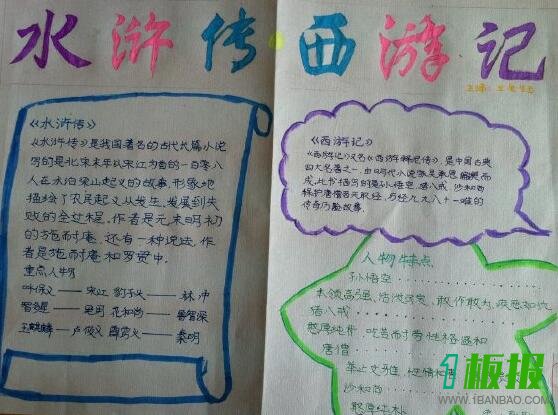 水浒传·西游记
《水浒传》
《水浒传》是我国著名的古代长篇小说
写的是北宋末年以宋江为首的一百零八
人在水泊梁山起义的故事,形象地
描绘了农民起义从发生、发展到失
败的全过程,作者是元末明初
的施耐庵,还有一种说法,作
者是施耐庵和罗贯中.
重点人物
呼保义——宋江 豹子头——林冲
智多星——吴用 花和尚——鲁智深
玉麒麟—卢俊义 霹雳火—秦明
《西游记》
《西游记》又名《西游释厄传》,是中国古典
四大名著之一,由明代小说家吴承恩编撰而
成,此书描写的是孙悟空、猪八戒、沙和尚
保护唐僧西天取经、历经九九八十一难的
传奇历险故事.
人物特点
孙悟空
本领高强、敢作敢为、疾恶如仇
猪八戒
憨厚纯朴 吃苦耐劳 性格温和
唐僧
举止文雅、性情和善
沙和尚
憨厚纯朴
1板报
WWW.1BANBAO.COM